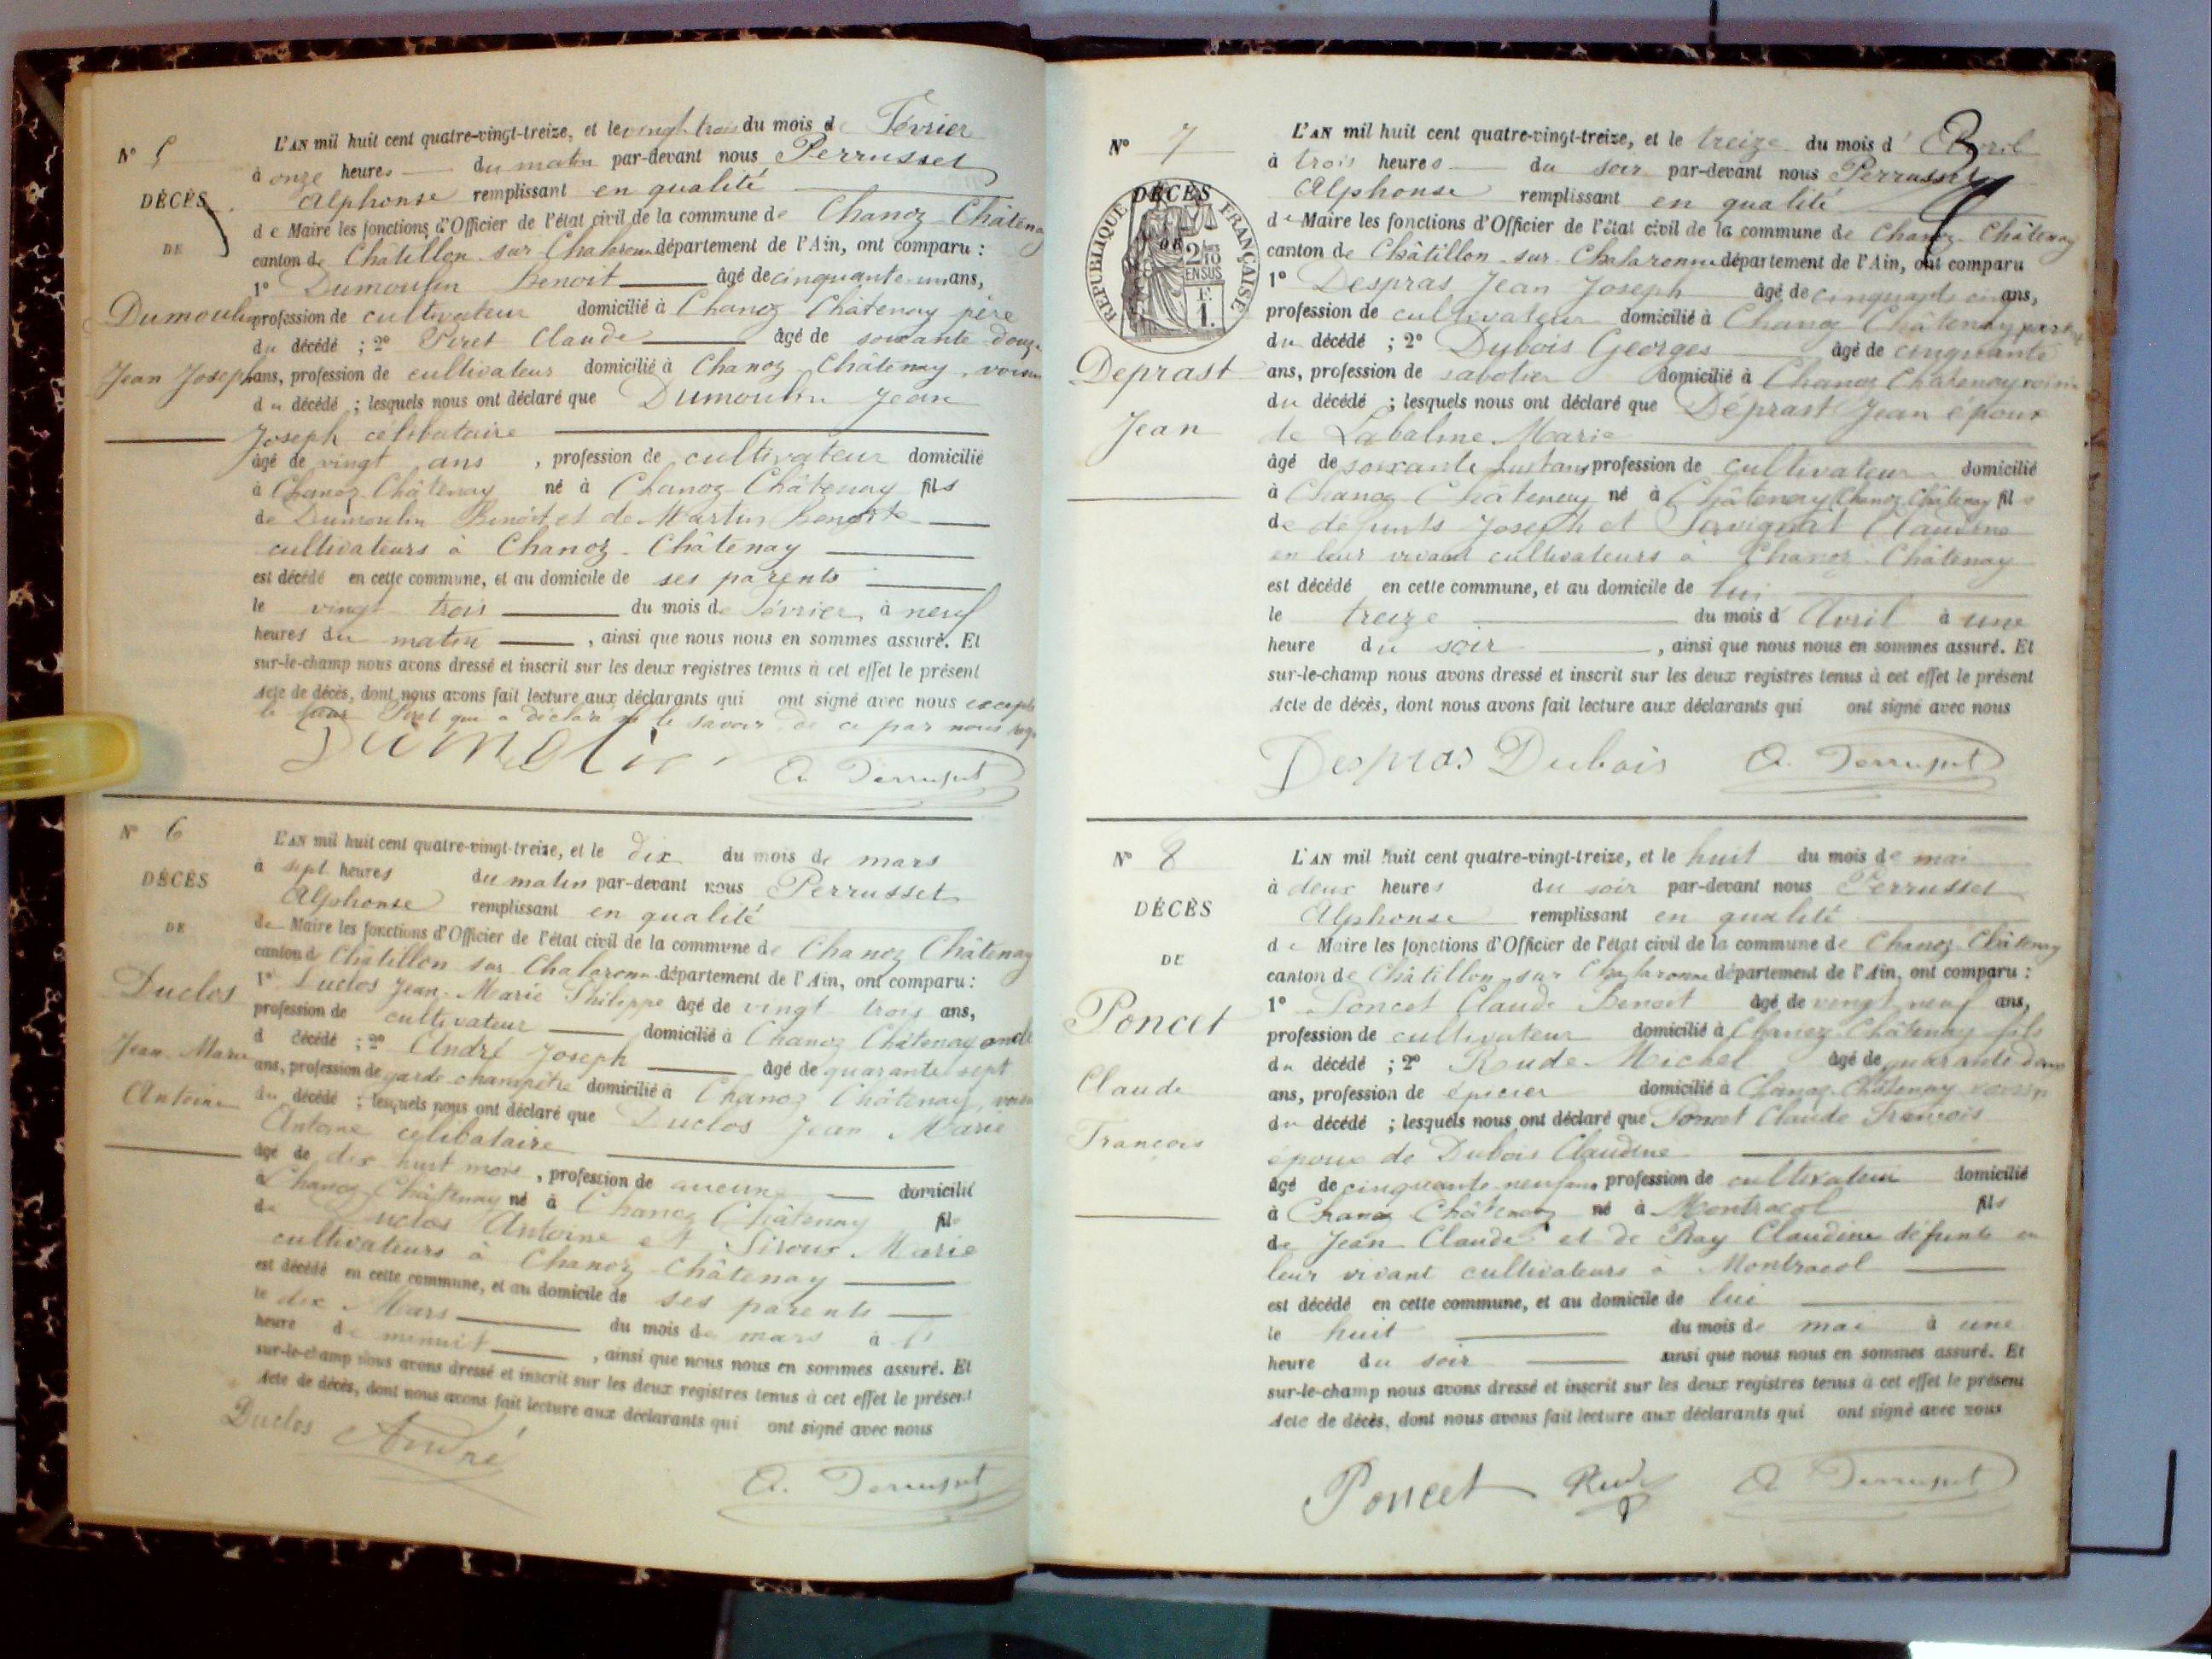 N° 5
DÉCÈS
DE
Dumoulin
Jean Joseph
L'AN mil huit cent quatre-vingt-treize, et le vingt-trois du mois de Février
à onze heures du matin par-devant nous Perrusset
Alphonse remplissant en qualité
de Maire les fonctions d'Officier de l'état civil de la commune de Chanoz-Châtenay
canton de Châtillon-sur-Chalaronne département de l'Ain, ont comparu :
1° Dumoulin Benoit âgé de cinquante-un ans,
profession de cultivateur domicilié à Chanoz Châtenay père
du décédé ; 2° Piret Claude âgé de soixante-douze
ans, profession de cultivateur domicilié à Chanoz Châtenay, voisin
du décédé ; lesquels nous ont déclaré que Dumoulin Jean
Joseph célibataire
âgé de vingt ans, profession de cultivateur domicilié
à Chanoz-Châtenay né à Chanoz-Châtenay fils
de Dumoulin Benoît et de Martin Benoîte
cultivateurs à Chanoz-Châtenay
est décédé en cette commune, et au domicile de ses parents
le vingt trois du mois de Février à neuf
heures du matin, ainsi que nous nous en sommes assuré. Et
sur-le-champ nous avons dressé et inscrit sur les deux registres tenus à cet effet le présent
Acte de décès, dont nous avons fait lecture aux déclarants qui ont signé avec nous excepté
le Piret qui a déclaré ne le savoir de ce par nous
Dumolin A. Perrusset
N° 6
DÉCÈS
DE
Duclos
Jean Marie
Antoine
L'AN mil huit cent quatre-vingt-treize, et le dix du mois de mars
à sept heures du matin par-devant nous Perrusset
Alphonse remplissant en qualité
de Maire les fonctions d'Officier de l'état civil de la commune de Chanoz Châtenay
canton de Châtillon sur Chalaronne département de l'Ain, ont comparu :
1° Duclos Jean-Marie Philippe âgé de vingt trois ans,
profession de cultivateur domicilié à Chanoz Châtenay oncle
d décédé ; 2° André Joseph âgé de quarante sept
ans, profession de garde champêtre domicilié à Chanoz Châtenay, voisin
du décédé ; lesquels nous ont déclaré que Duclos Jean Marie
Antoine célibataire
âgé de dix huit mois, profession de aucune domicilié
à Chanoz Châtenay né à Chanoz Châtenay fils
de Duclos Antoine et Siroux Marie
cultivateurs à Chanoz-Châtenay
est décédé en cette commune, et au domicile de ses parents
le dix Mars du mois de mars à
heure de minuit, ainsi que nous nous en sommes assuré. Et
sur-le-champ nous avons dressé et inscrit sur les deux registres tenus à cet effet le présent
Acte de décès, dont nous avons fait lecture aux déclarants qui ont signé avec nous
Duclos André
A. Perrusset
N° 7
DÉCÈS
DE
RÉPUBLIQUE FRANÇAISE
2/10
EN SUS
F.
1.
Deprast
Jean
L'AN mil huit cent quatre-vingt-treize, et le treize du mois d'Avril
à trois heures du soir par-devant nous Perrusset
Alphonse remplissant en qualité
de Maire les fonctions d'Officier de l'état civil de la commune de Chanoz-Châtenay
canton de Châtillon-sur-Chalaronne département de l'Ain, ont comparu
1° Despras Jean Joseph âgé de cinquante cinq ans,
profession de cultivateur domicilié à Chanoz Châtenay
du décédé ; 2° Dubois Georges âgé de cinquante
ans, profession de sabotier domicilié à Chanoz Châtenay voisin
du décédé ; lesquels nous ont déclaré que Déprast Jean époux
de Labalme Marie
âgé de soixante huit ans profession de cultivateur domicilié
à Chanoz-Châtenay né à Châtenay (Chanoz Châtenay fils
de défunts Joseph et Savignat Claudine
en leur vivant cultivateurs à Chanoz-Châtenay
est décédé en cette commune, et au domicile de lui
le treize du mois d'Avril à une
heure du soir, ainsi que nous nous en sommes assuré. Et
sur-le-champ nous avons dressé et inscrit sur les deux registres tenus à cet effet le présent
Acte de décès, dont nous avons fait lecture aux déclarants qui ont signé avec nous
Despras Dubois A. Perrusset
N° 8
DÉCÈS
DE
Poncet
Claude
François
L'AN mil huit cent quatre-vingt-treize, et le huit du mois de mai
à deux heures du soir par-devant nous Perrusset
Alphonse remplissant en qualité
de Maire les fonctions d'Officier de l'état civil de la commune de Chanoz-Châtenay
canton de Châtillon-sur-Chalaronne département de l'Ain, ont comparu :
1° Poncet Claude Benoit âgé de vingt neuf ans,
profession de cultivateur domicilié à Chanoz-Châtenay fils
du décédé ; 2° Rude Michel âgé de quarante deux
ans, profession de épicier domicilié à Chanoz-Châtenay voisin
du décédé ; lesquels nous ont déclaré que Poncet Claude François
époux de Dubois Claudine
âgé de cinquante neuf ans profession de cultivateur domicilié
à Chanoz Châtenay né à Montracol fils
de Jean Claude et de Ray Claudine défunts en
leur vivant cultivateurs à Montracol
est décédé en cette commune, et au domicile de lui
le huit du mois de mai à une
heure du soir ainsi que nous nous en sommes assuré. Et
sur-le-champ nous avons dressé et inscrit sur les deux registres tenus à cet effet le présent
Acte de décès, dont nous avons fait lecture aux déclarants qui ont signé avec nous
Poncet Rude A. Perrusset